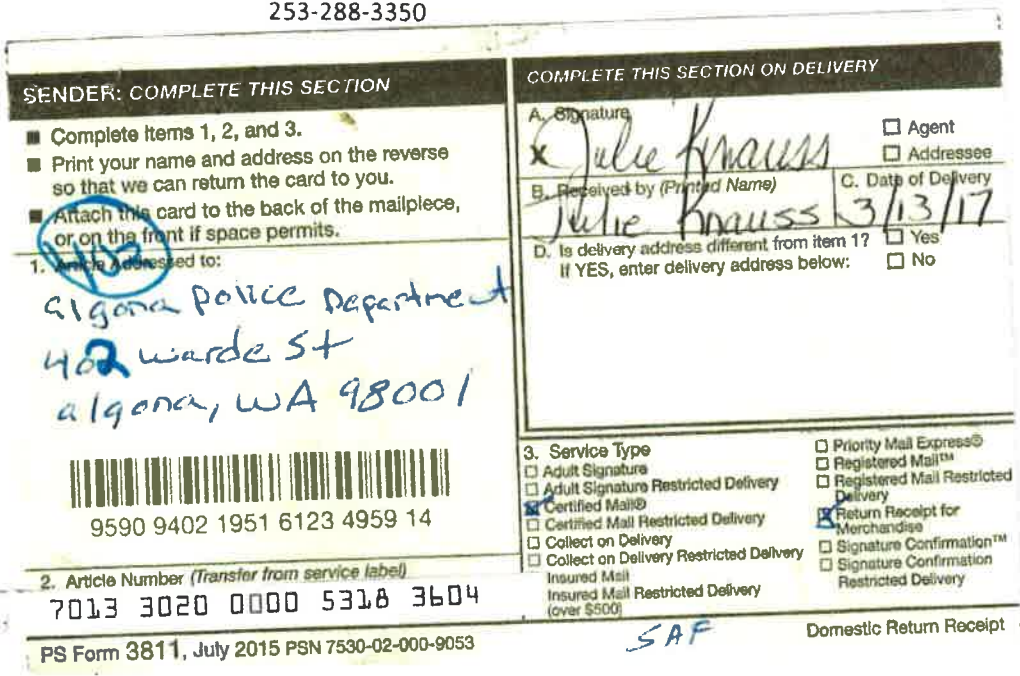 253-288-3350
SENDER: COMPLETE THIS SECTION
■ Complete items 1, 2, and 3.
■ Print your name and address on the reverse
so that we can return the card to you.
■ Attach this card to the back of the mailpiece,
or on the front if space permits.
1. Article Addressed to:
algona police Department
402 warde St
algona, WA 98001
9590 9402 1951 6123 4959 14
2. Article Number (Transfer from service label)
7013 3020 0000 5318 3604
COMPLETE THIS SECTION ON DELIVERY
A. Signature
X Julie Knauss
☐ Agent
☐ Addressee
B. Received by (Printed Name)
Julie Knauss
C. Date of Delivery
3/13/17
D. Is delivery address different from item 1? ☐ Yes
If YES, enter delivery address below: ☐ No
3. Service Type
☐ Adult Signature
☐ Adult Signature Restricted Delivery
☒ Certified Mail®
☐ Certified Mail Restricted Delivery
☐ Collect on Delivery
☐ Collect on Delivery Restricted Delivery
Insured Mail
Insured Mail Restricted Delivery
(over $500)
☐ Priority Mail Express®
☐ Registered Mail™
☐ Registered Mail Restricted
Delivery
☒ Return Receipt for
Merchandise
☐ Signature Confirmation™
☐ Signature Confirmation
Restricted Delivery
SAF
PS Form 3811, July 2015 PSN 7530-02-000-9053
Domestic Return Receipt